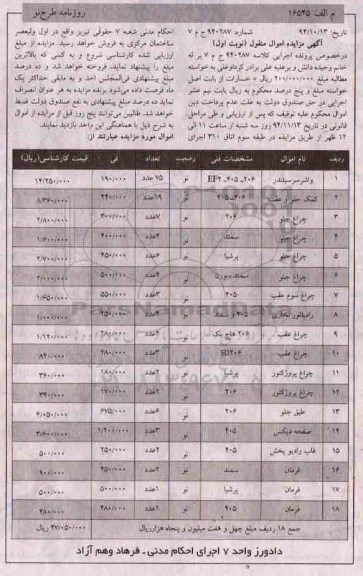 م الف ۱۶۵۴۵
روزنامه طرح نو
تاریخ: ۹۴/۱۰/۱۳ شماره: ۹۴۰۲۸۷ ج م ۷
آگهی مزایده اموال منقول (نوبت اول)
درخصوص پرونده اجرایی کلاسه ۹۴۰۲۸۷ ج م ۷ بر له
خانم وحیده دانش و بر علیه علی برادر کرداوغلی به خواسته
مطالبه مبلغ ۲۰۰/۰۰۰/۰۰۰ ریال + خسارات از بابت اصل
خواسته مبلغ و پنج درصد محکوم به ریال بابت نیم عشر
اجرایی در حق صندوق دولت به علت عدم پرداخت دین
اموال محکوم علیه توقیف که پس از ارزیابی و طی مراحل
قانونی در تاریخ ۹۴/۱۱/۱۳ روز سه شنبه از ساعت ۱۱ الی
۱۲ ظهر از طریق مزایده در طبقه سوم اتاق ۳۱۰ اجرای
احکام مدنی شعبه ۷ حقوقی تبریز واقع در اول ولیعصر
ساختمان مرکزی به فروش خواهد رسید. مزایده از مبلغ
ارزیابی شده کارشناسی شروع و به کسی که بالاترین
مبلغ را پیشنهاد نماید، فروخته خواهد شد و ده درصد
مبلغ پیشنهادی فی‌المجلس اخذ و به مابقی حداکثر یک
ماه فرصت داده می‌شود برنده مزایده به هر عنوان انصراف
نماید ده درصد مبلغ پیشنهادی به نفع صندوق دولت ضبط
خواهد شد. طالبین می‌توانند پنج روز قبل از مزایده از اموال
به شرح ذیل با هماهنگی این واحد بازدید نمایند.
اموال مورد مزایده عبارتند از:
ردیف نام اموال مشخصات فنی وضعیت تعداد فی قیمت کارشناسی(ریال)
۱ واشرسرسیلندر ۲۰۶ـ ۴۰۵ـ EF۴ نو ۷۵ عدد ۱۹۰/۰۰۰ ۱۴/۲۵۰/۰۰۰
۲ کمک جلو و عقب ۲۰۶ـ۴۰۵ نو ۱۹عدد ۴۴۰/۰۰۰ ۸/۳۶۰/۰۰۰
۳ چراغ جلو ۲۰۶ نو
۴ چراغ جلو سمند نو ۴عدد ۴۰۰/۰۰۰ ۱/۶۰۰/۰۰۰
۵ چراغ جلو پرشیا نو ۶عدد ۴۵۰/۰۰۰ ۲/۷۰۰/۰۰۰
۶ چراغ جلو سمندسورن نو ۵۰۰/۰۰۰
۷ چراغ سوم عقب ۴۰۵ نو ۳عدد ۵۵۰/۰۰۰ ۱/۶۵۰/۰۰۰
۸ رادیاتور بخاری ۴۰۵ و سمند نو
۹ چراغ عقب ۲۰۶ هاچ بک نو ۴عدد ۲۸۰/۰۰۰ ۱/۱۲۰/۰۰۰
۱۰ چراغ عقب SD۲۰۶ نو ۳عدد ۲۸۰/۰۰۰ ۸۴۰/۰۰۰
۱۱ چراغ پروژکتور پرشیا نو ۲عدد ۱۸۰/۰۰۰ ۳۶۰/۰۰۰
۱۲ چراغ پروژکتور ۲۰۶ نو ۲عدد ۱۷۰/۰۰۰ ۳۴۰/۰۰۰
۱۳ طبق جلو ۲۰۶ نو ۶عدد ۶۷۵/۰۰۰ ۴/۰۵۰/۰۰۰
۱۴ صفحه دیکس ۴۰۵ نو ۳عدد ۱/۲۰۰/۰۰۰ ۳/۶۰۰/۰۰۰
۱۵ قاب رادیو پخش ۴۰۵ نو ۲عدد ۲۵۰/۰۰۰ ۵۰۰/۰۰۰
۱۶ فرمان سمند نو ۲عدد ۴۵۰/۰۰۰ ۹۰۰/۰۰۰
۱۷ فرمان پرشیا نو ۱عدد ۵۰۰/۰۰۰ ۵۰۰/۰۰۰
۱۸ فرمان ۴۰۵ نو ۱عدد ۴۸۰/۰۰۰ ۴۸۰/۰۰۰
جمع ۱۸ ردیف مبلغ چهل و هفت میلیون و پنجاه هزارریال ۴۷/۰۵۰/۰۰۰ ریال
دادورز واحد ۷ اجرای احکام مدنی ـ فرهاد وهم آزاد